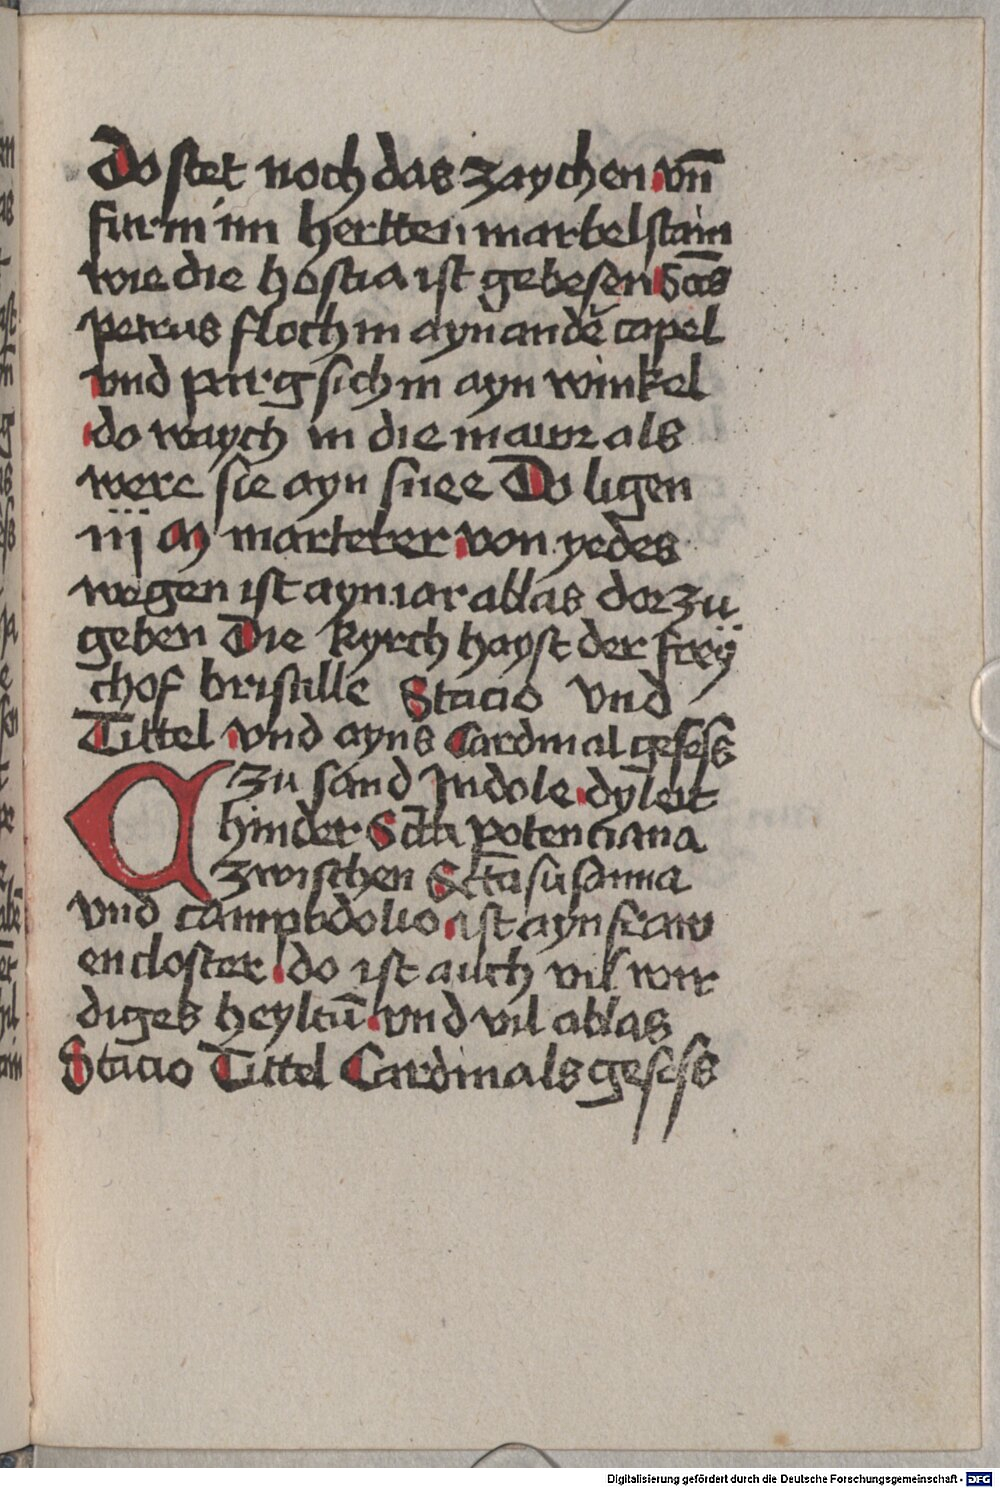 Do stet noch das zaychen vn̄
furm im hertten marbelstain
wie die hostia ist gebesen Sc̄s
petrus floch in ayn andē capel
vnd purg sich in ayn winkel
do waych in die maur als
were sie ayn snee Do ligen
iij M marterer von yedes
wegen ist ayn iar ablas dorzu
geben Die kyrch hayst der freÿ
thof brisille Stacio vnd
Tittel vnd ayns Cardinal gesess
Zu sand Indole dy leit
hinder Sctā potenciana
zwischen Sctā susanna
vnd campodolio ist ayn fraw
en closter do ist auch vil wir
diges heyltū vnd vil ablas
Stacio Tittel Cardinals gesess
Digitalisierung gefördert durch die Deutsche Forschungsgemeinschaft - DFG